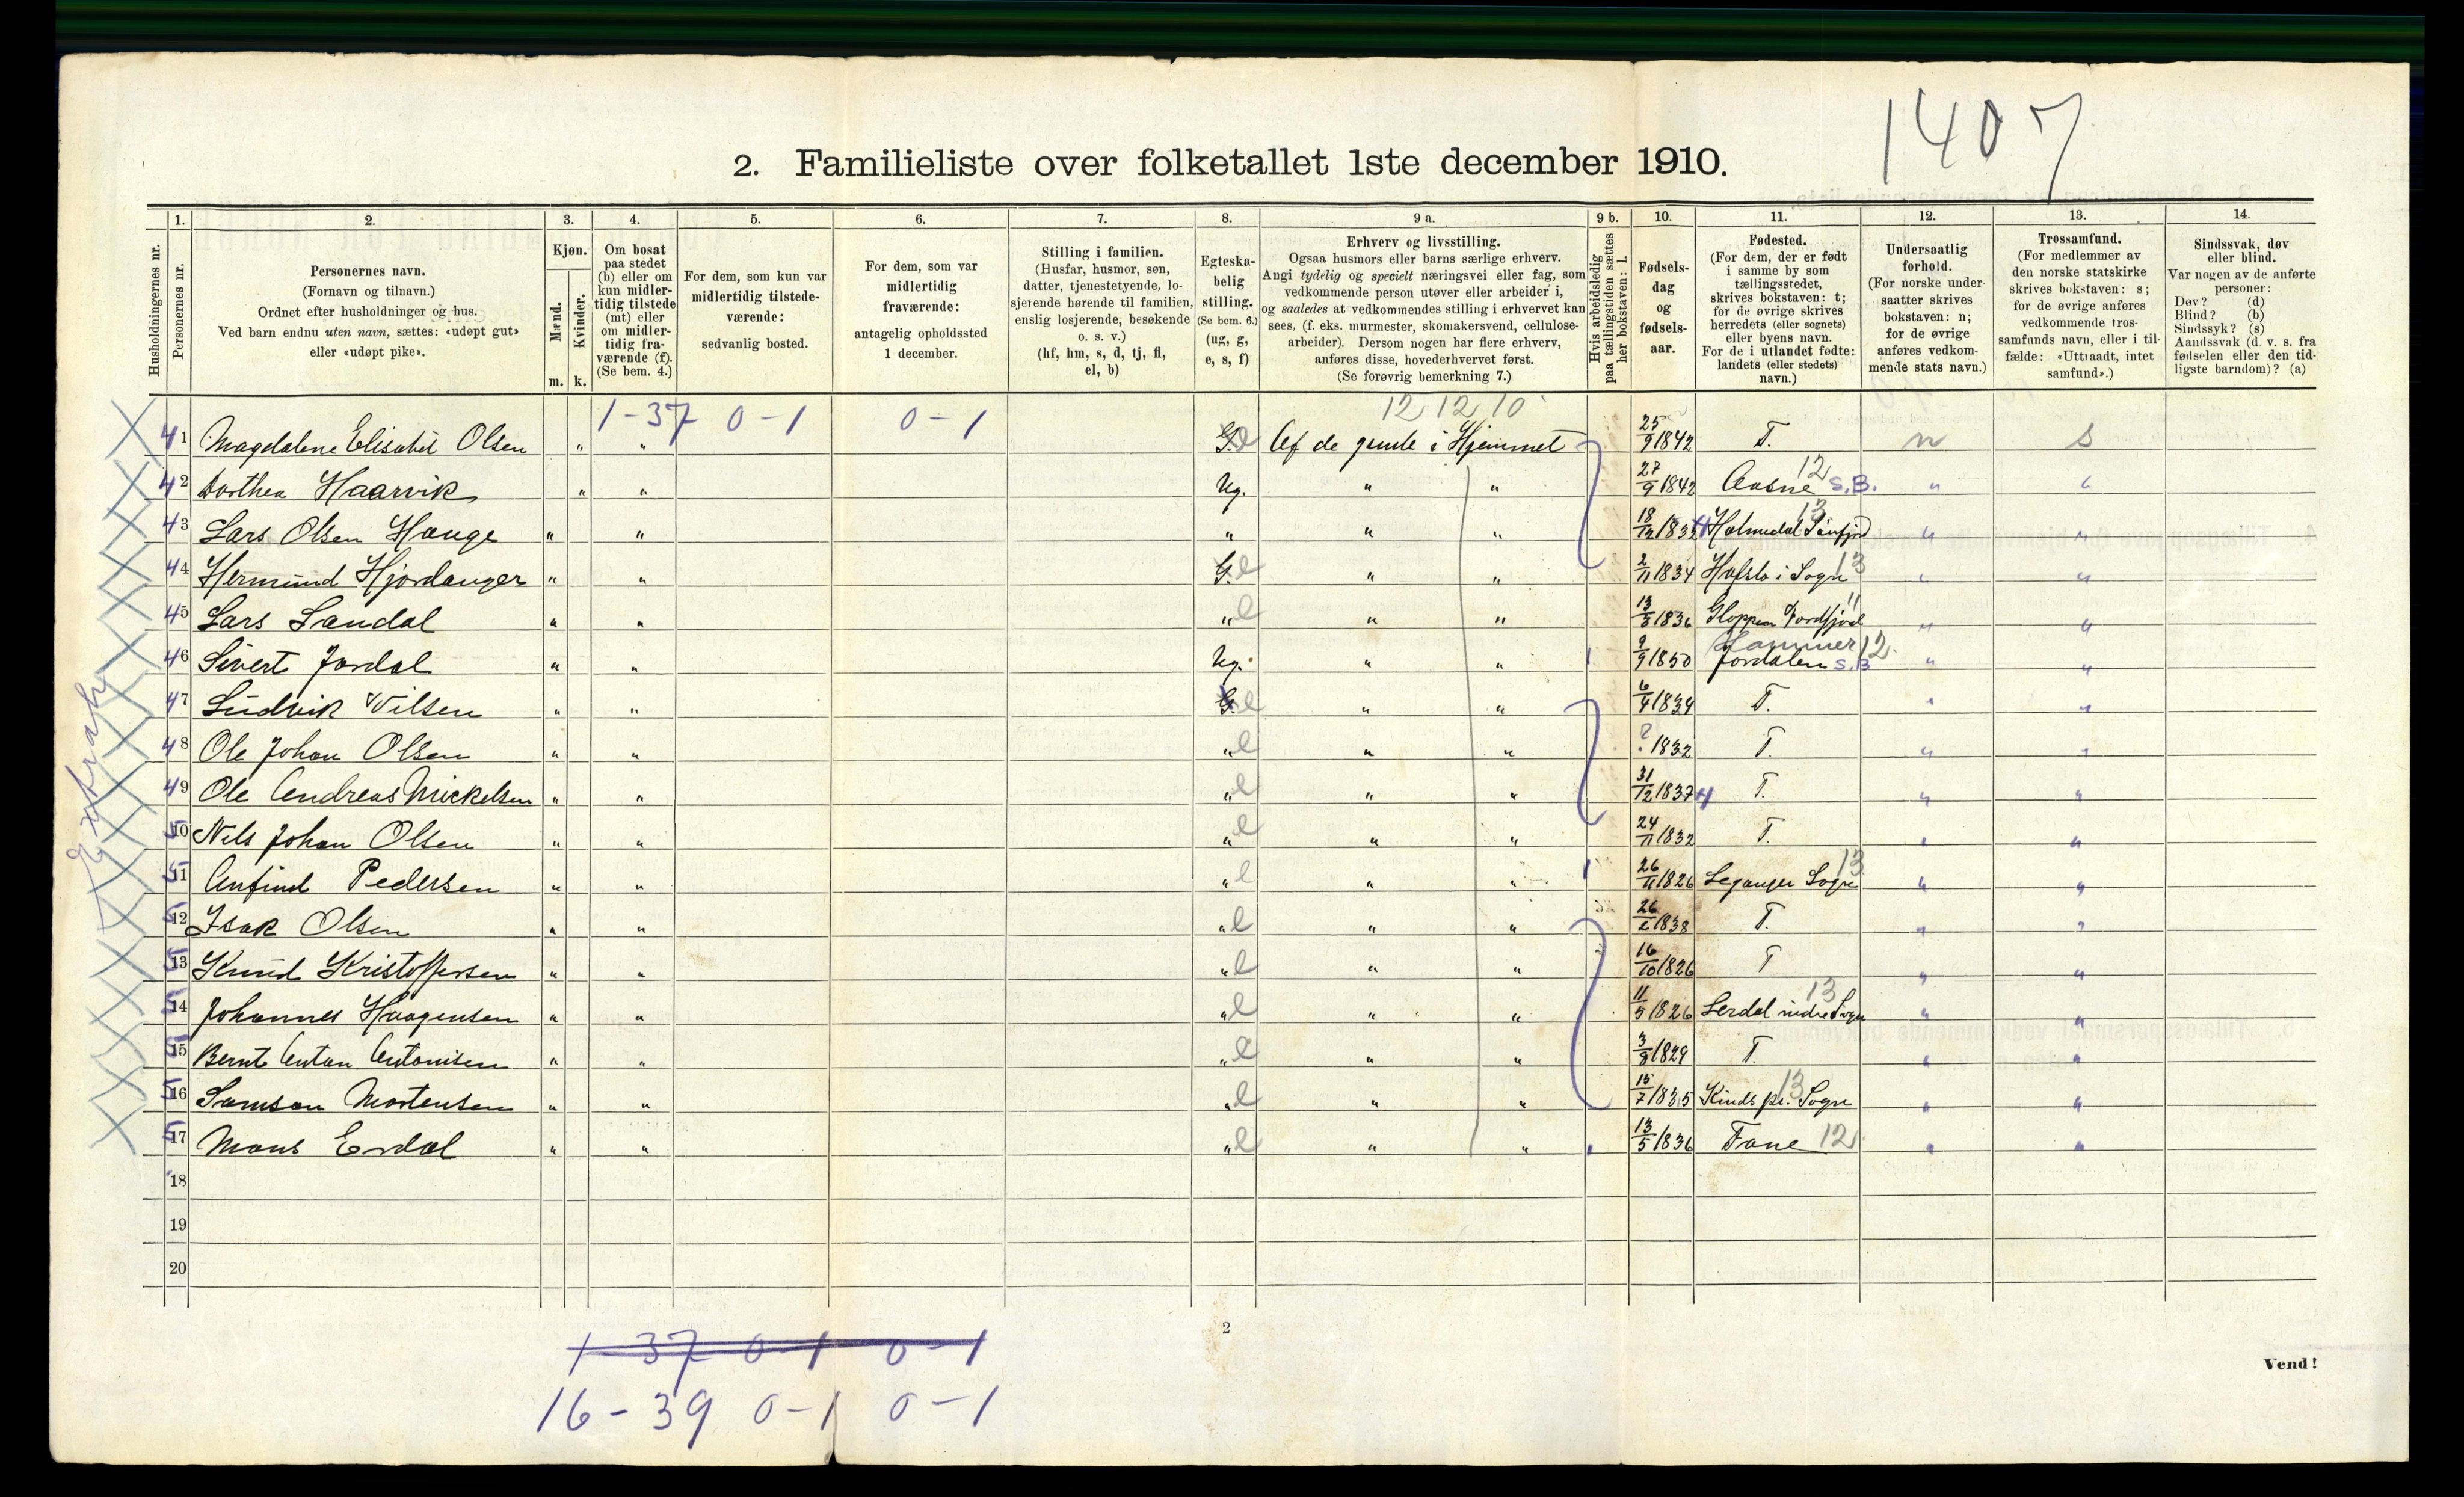 1407
2. Familieliste over folketallet 1ste december 1910.
Husholdningernes nr.
1.
Personernes nr.
2.
Personernes navn.
(Fornavn og tilnavn.)
Ordnet efter husholdninger og hus.
Ved barn endnu uten navn, sættes: «udøpt gut»
eller «udøpt pike».
3.
Kjøn.
Mænd.
Kvinder.
m. k.
4.
Om bosat
paa stedet
(b) eller om
kun midler-
tidig tilstede
(mt) eller
om midler-
tidig fra-
værende (f).
(Se bem. 4.)
5.
For dem, som kun var
midlertidig tilstede-
værende:
sedvanlig bosted.
6.
For dem, som var
midlertidig
fraværende:
antagelig opholdssted
1 december.
7.
Stilling i familien.
(Husfar, husmor, søn,
datter, tjenestetyende, lo-
sjerende hørende til familien,
enslig losjerende, besøkende
o. s. v.)
(hf, hm, s, d, tj, fl,
el, b)
8.
Egteska-
belig
stilling.
(Se bem. 6.)
(ug, g,
e, s, f)
9 a.
Erhverv og livsstilling.
Ogsaa husmors eller barns særlige erhverv.
Angi tydelig og specielt næringsvei eller fag, som
vedkommende person utøver eller arbeider i,
og saaledes at vedkommendes stilling i erhvervet kan
sees, (f. eks. murmester, skomakersvend, cellulose-
arbeider). Dersom nogen har flere erhverv,
anføres disse, hovederhvervet først.
(Se forøvrig bemerkning 7.)
9 b.
Hvis arbeidsledig
paa tællingstiden sættes
her bokstaven: l.
10.
Fødsels-
dag
og
fødsels-
aar.
11.
Fødested.
(For dem, der er født
i samme by som
tællingsstedet,
skrives bokstaven: t;
for de øvrige skrives
herredets (eller sognets)
eller byens navn.
For de i utlandet fødte:
landets (eller stedets)
navn.)
12.
Undersaatlig
forhold.
(For norske under-
saatter skrives
bokstaven: n;
for de øvrige
anføres vedkom-
mende stats navn.)
13.
Trossamfund.
(For medlemmer av
den norske statskirke
skrives bokstaven: s;
for de øvrige anføres
vedkommende tros-
samfunds navn, eller i til-
fælde: «Uttraadt, intet
samfund».)
14.
Sindssvak, døv
eller blind.
Var nogen av de anførte
personer:
Døv? (d)
Blind? (b)
Sindssyk? (s)
Aandssvak (d. v. s. fra
fødselen eller den tid-
ligste barndom)? (a)
1-37 0-1 0-1 12 12 10
41 Magdalene Elisabet Olsen " " G. e Af de gamle i Hjemmet 25/9 1842 T. n s
42 Dorthea Haarvik " " Ug. " " 27/9 1842 12 S.B. " "
43 Lars Olsen Hauge " " " " " 18/12 183 Holmedal Sönfjord 13 " "
44 Hermund Hjordanger " " G. e " " 2/11 1834 Hafslo i Sogn 13 " "
45 Lars Sandal " " " e " " 13/3 1836 Gloppen Nordfjord 11 " "
46 Sivert Jordal " " Ug. " " 9/9 1850 Hammer 12 Jordalen S.B " "
47 Ludvik Nilsen " " G. e " " 6/4 1834 T. " "
48 Ole Johan Olsen " " " e " " ? 1832 T. " "
49 Ole Andreas Mickelsen " " " e " " 31/12 1837 T. " "
50 Nils Johan Olsen " " " e " " 24/11 1832 T. " "
51 Anfind Pedersen " " " e " " 26/11 1826 Leganger Sogn 13 " "
52 Isak Olsen " " " e " " 26/2 1838 T. " "
53 Knud Kristoffersen " " " e " " 16/10 1826 T " "
54 Johannes Haagensen " " " e " " 11/5 1826 Lerdal indre Sogn 13 " "
55 Bernt Anton Antonisen " " " e " " 3/8 1829 T. " "
56 Samson Mortensen " " " e " " 15/7 1835 Kinds pr. Sogn 13 " "
57 Mons Erdal " " " e " " 13/5 1836 Fane 12 " "
18
19
20
2
1-37 0-1 0-1
16-39 0-1 0-1
Vend!